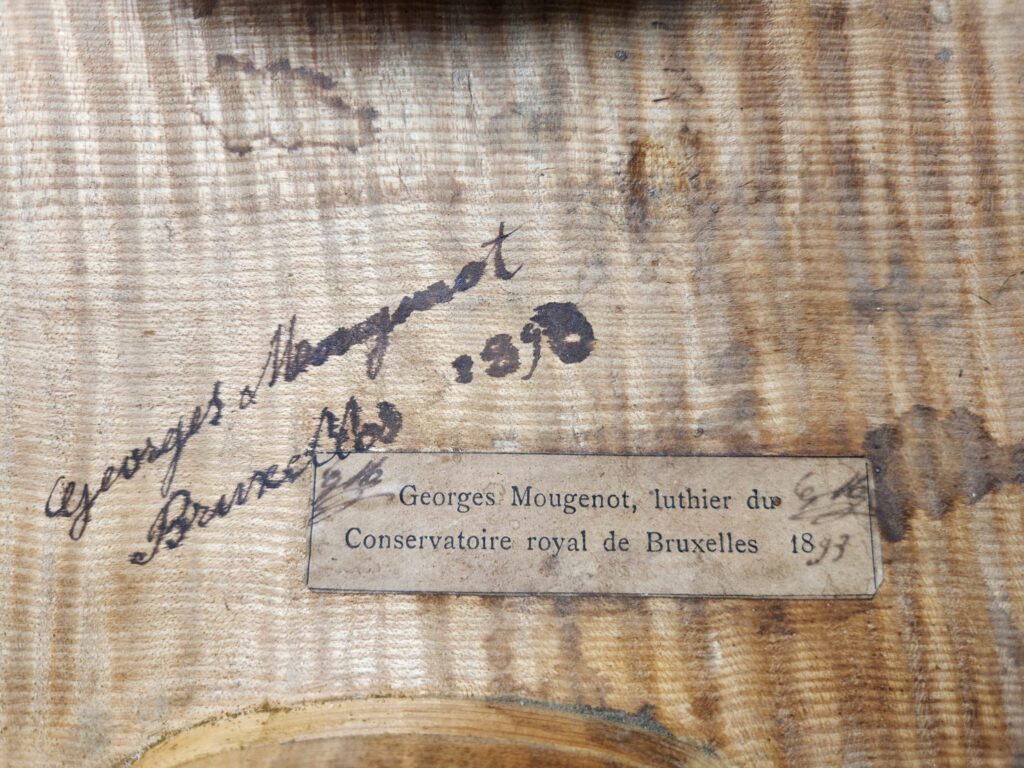 Georges Mougenot
Bruxelles 189
Georges Mougenot, luthier du
Conservatoire royal de Bruxelles 1893